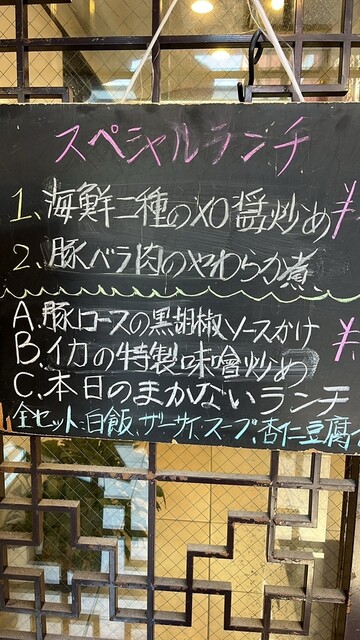 スペシャルランチ
1、海鮮二種のXO醤炒め ¥
2、豚バラ肉のやわらか煮
A.豚ロースの黒胡椒ソースかけ ¥
B.イカの特製味噌炒め
C.本日のまかないランチ
全セット:白飯、ザーサイ、スープ、杏仁豆腐